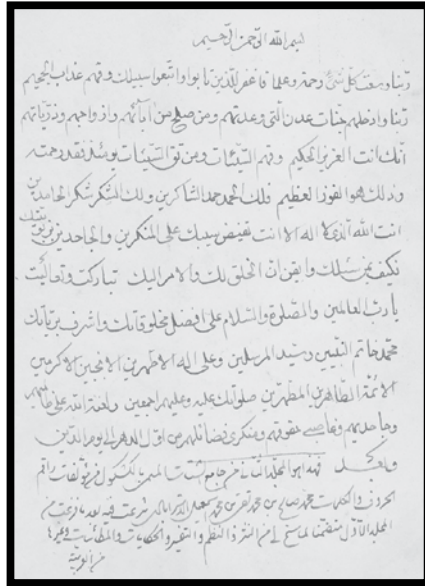 بسم الله الرحمن الرحيم
ربنا وسعت كل شئ رحمة وعلما فاغفر للذين تابوا واتبعوا سبيلك وقهم عذاب الجحيم
ربنا وادخلهم جنات عدن التي وعدتهم ومن صلح من آبائهم وازواجهم وذرياتهم
انك انت العزيز الحكيم وقهم السيئات ومن تق السيئات يومئذ فقد رحمته
وذلك هو الفوز العظيم فلك الحمد حمد الشاكرين ولك الشكر شكر الحامدين
انت الله الذي لا اله الا انت تفيض سيبك على المنكرين والجاحدين
فكيف بمن سئلك وايقن ان الخلق لك والامر اليك تباركت وتعاليت
يا رب العالمين والصلوة والسلام على افضل مخلوقاتك واشرف برياتك
محمد خاتم النبيين وسيد المرسلين وعلى اله الاطهرين الانجبين الاكرمين
الائمة الطاهرين المطهرين صلواتك عليه وعليهم اجمعين ولعنة الله على
وجاحديهم وغاصبي حقوقهم ومنكري فضائلهم من اول الدهر الى يوم الدين
وبعد فهذا هو المجلد من جامع الشتات المسمى بالكشكول من مؤلفات راقم
الحروف والكلمات محمد صالح بن محمد تقي بن محمد اسمعيل شرعت فيه بعد فرغت من
المجلد الاول متضمنا لما سنح لي من النثر والنظم والتفسير والحكايات والمطائبات وغيرها